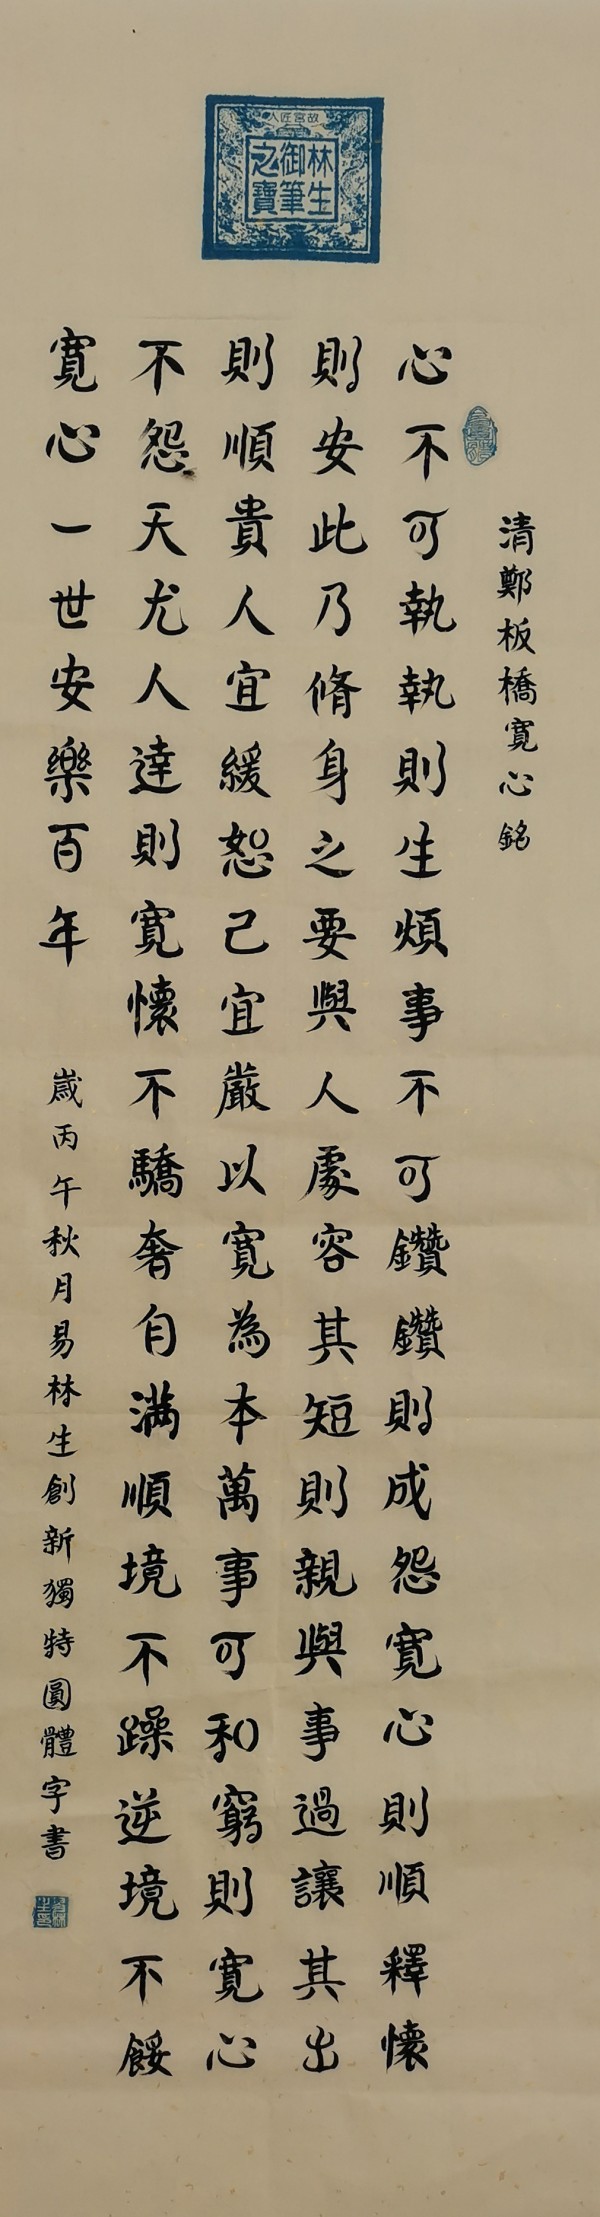 故宮匠人
林生
御筆
之寶
清鄭板橋寬心銘
心不可執執則生煩事不可鑽鑽則成怨寬心則順釋懷
則安此乃脩身之要與人處容其短則親與事過讓其出
則順貴人宜緩恕己宜嚴以寬為本萬事可和窮則寬心
不怨天尤人達則寬懷不驕奢自满順境不躁逆境不餒
寬心一世安樂百年
歲丙午秋月易林生創新獨特圓體字書